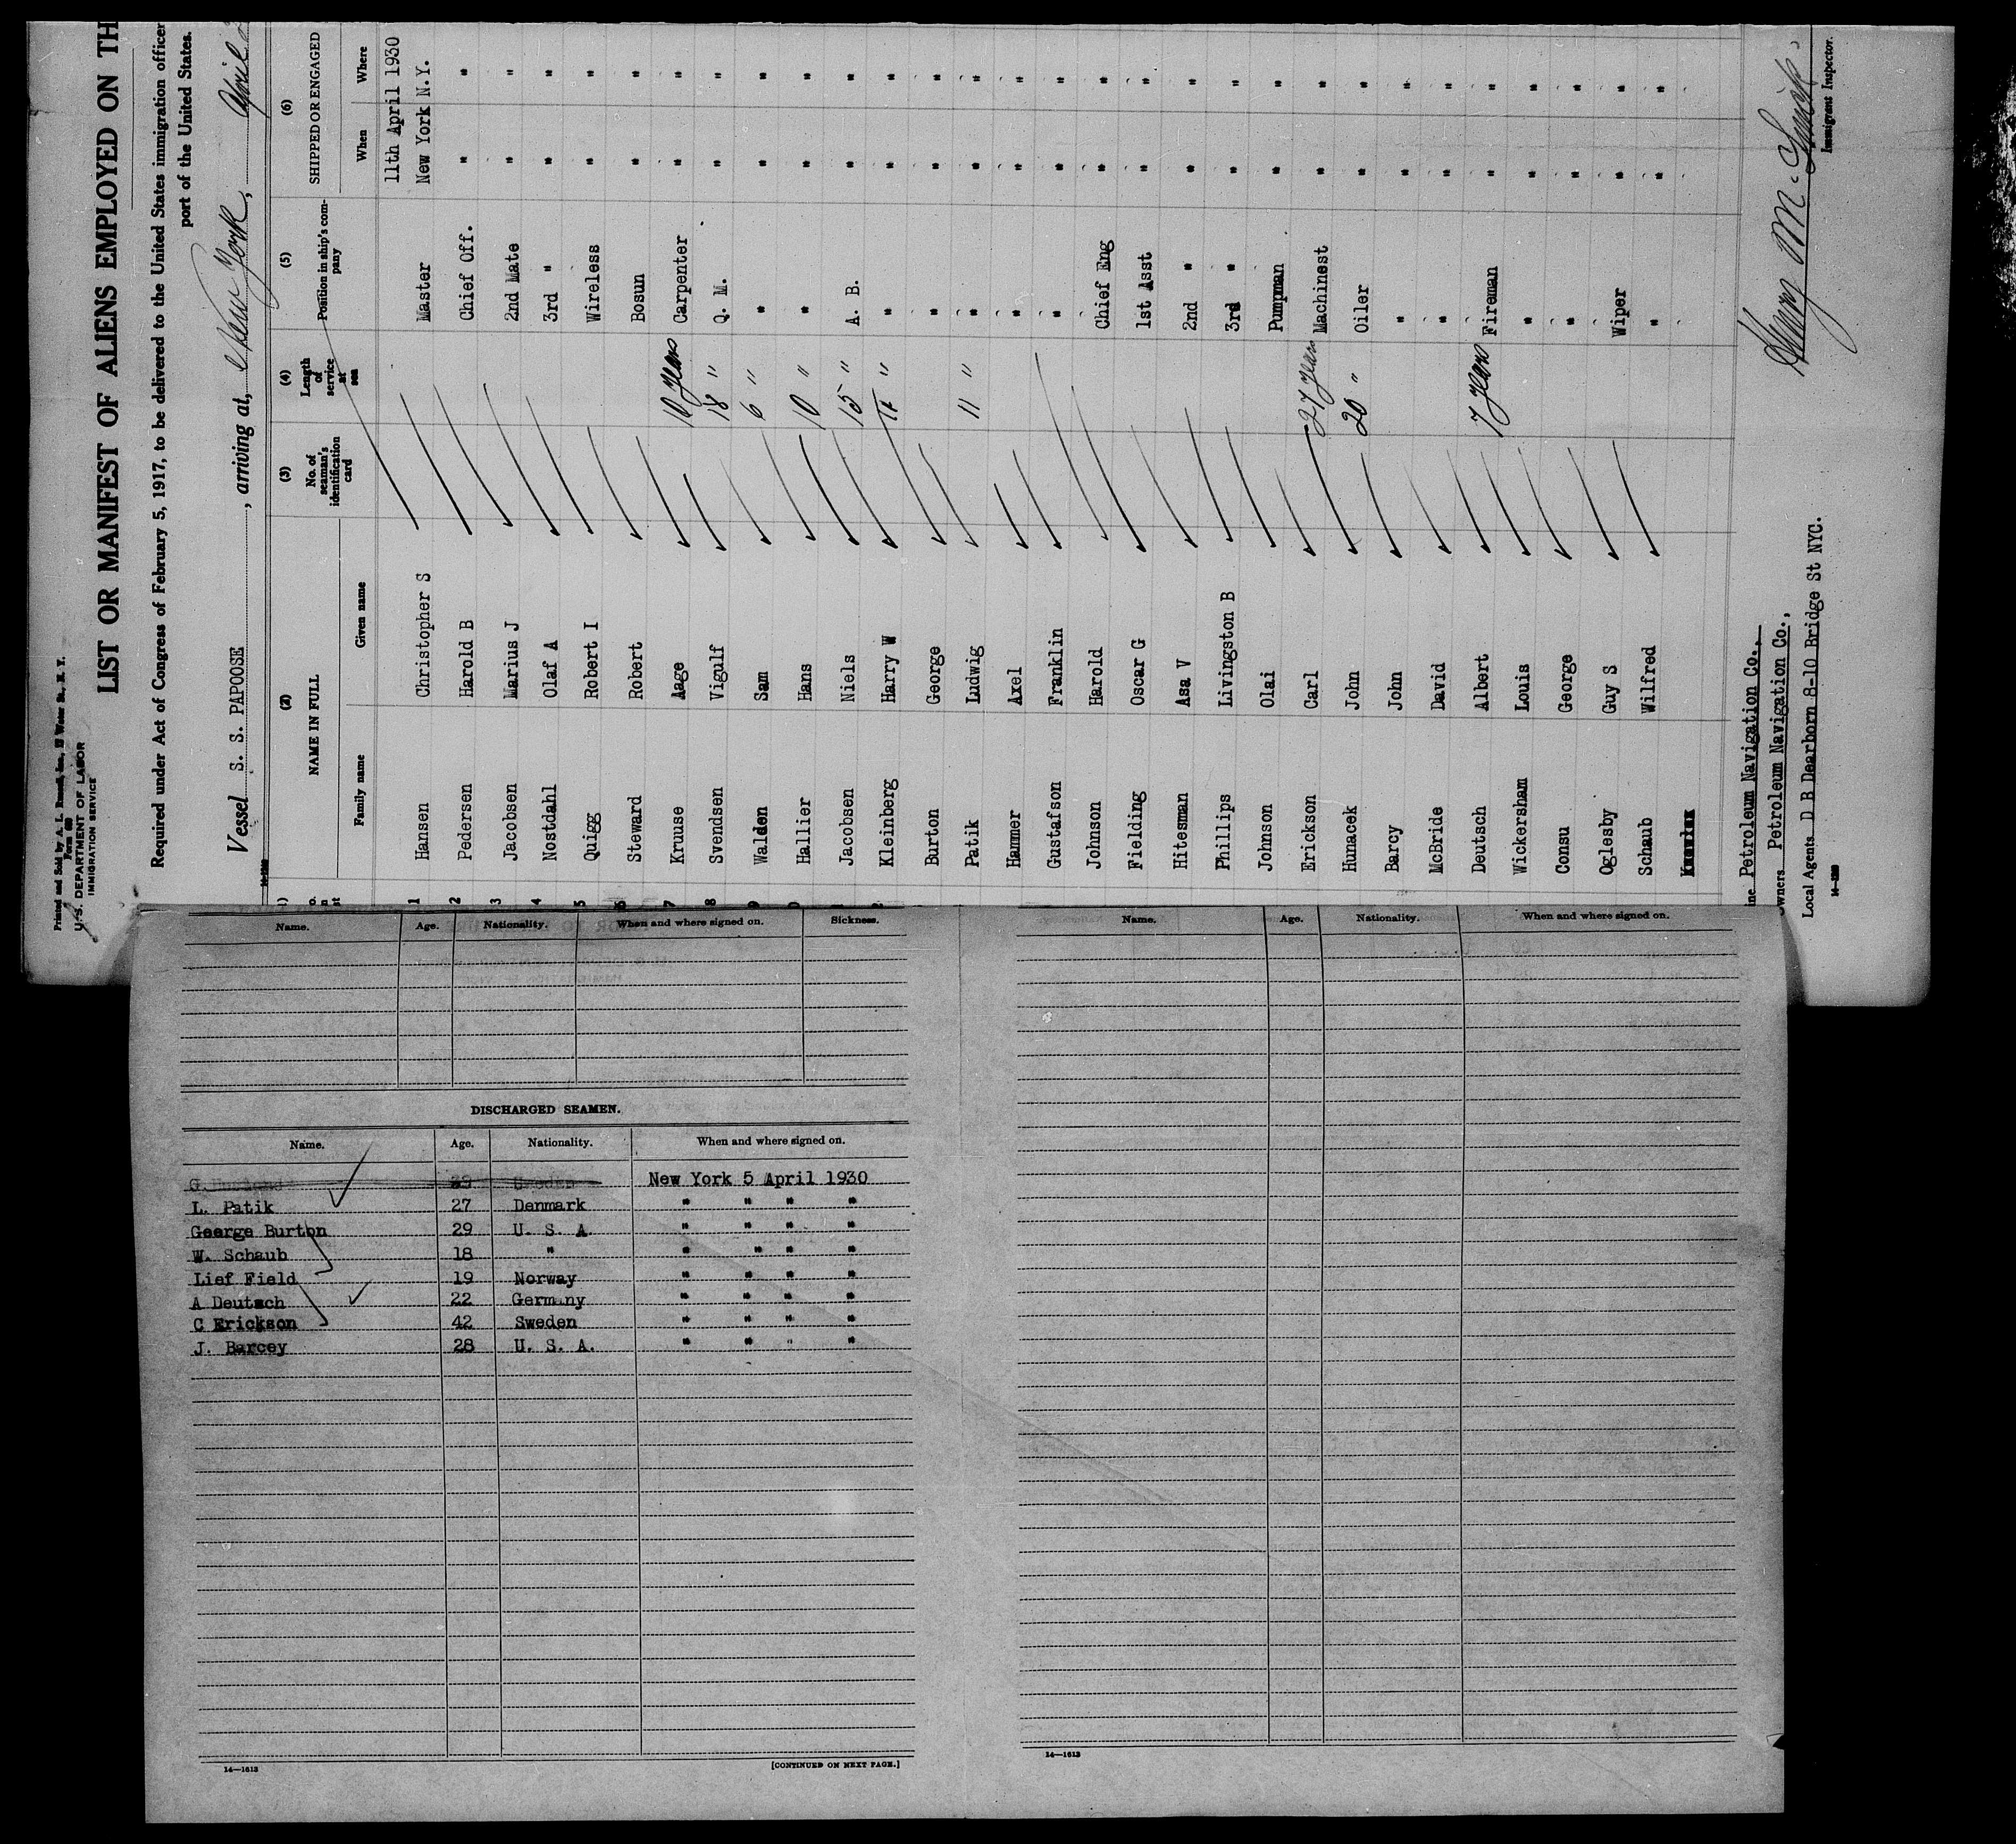 Printed and Sold by A. L. Russell, Inc., Water St., N. Y.
Form 689
U. S. DEPARTMENT OF LABOR
IMMIGRATION SERVICE
LIST OR MANIFEST OF ALIENS EMPLOYED ON TH
Required under Act of Congress of February 5, 1917, to be delivered to the United States immigration officer
port of the United States.
Vessel S. S. PAPOOSE, arriving at, New York, April
14-1240
(2) (3) (4) (5) (6)
NAME IN FULL No. of seaman's identification card Length of service at sea Position in ship's company SHIPPED OR ENGAGED
Family name Given name When Where
11th April 1930
1 Hansen Christopher S Master New York N.Y.
2 Pedersen Harold B Chief Off. " "
3 Jacobsen Marius J 2nd Mate " "
4 Nostdahl Olaf A 3rd " " "
5 Quigg Robert I Wireless " "
6 Steward Robert Bosun " "
7 Kruuse Aage 10 years Carpenter " "
8 Svendsen Vigulf 18 " Q. M. " "
9 Walden Sam 6 " " " "
0 Hallier Hans 10 " " " "
1 Jacobsen Niels 15 " A. B. " "
2 Kleinberg Harry W 11 " " " "
Burton George " " "
Patik Ludwig 11 " " " "
Hammer Axel " " "
Gustafson Franklin " " "
Johnson Harold Chief Eng " "
Fielding Oscar G 1st Asst " "
Hitesman Asa V 2nd " " "
Phillips Livingston B 3rd " " "
Johnson Olai Pumpman " "
Erickson Carl 27 years Machinest " "
Hunacek John 20 " Oiler " "
Barcy John " " "
McBride David " " "
Deutsch Albert 7 years Fireman " "
Wickersham Louis " " "
Consu George " " "
Oglesby Guy S Wiper " "
Schaub Wilfred " " "
ine Petroleum Navigation Co.,
wners Petroleum Navigation Co.,
Local Agents D B Dearborn 8-10 Bridge St NYC.
Immigrant Inspector.
Name. Age. Nationality. When and where signed on. Sickness.
DISCHARGED SEAMEN.
Name. Age. Nationality. When and where signed on.
New York 5 April 1930
L. Patik 27 Denmark " " " "
George Burton 29 U. S. A. " " " "
W. Schaub 18 " " " " "
Lief Field 19 Norway " " " "
A Deutsch 22 Germany " " " "
C Erickson 42 Sweden " " " "
J. Barcey 28 U. S. A. " " " "
14—1613 [CONTINUED ON NEXT PAGE.]
Name. Age. Nationality. When and where signed on.
14—1613